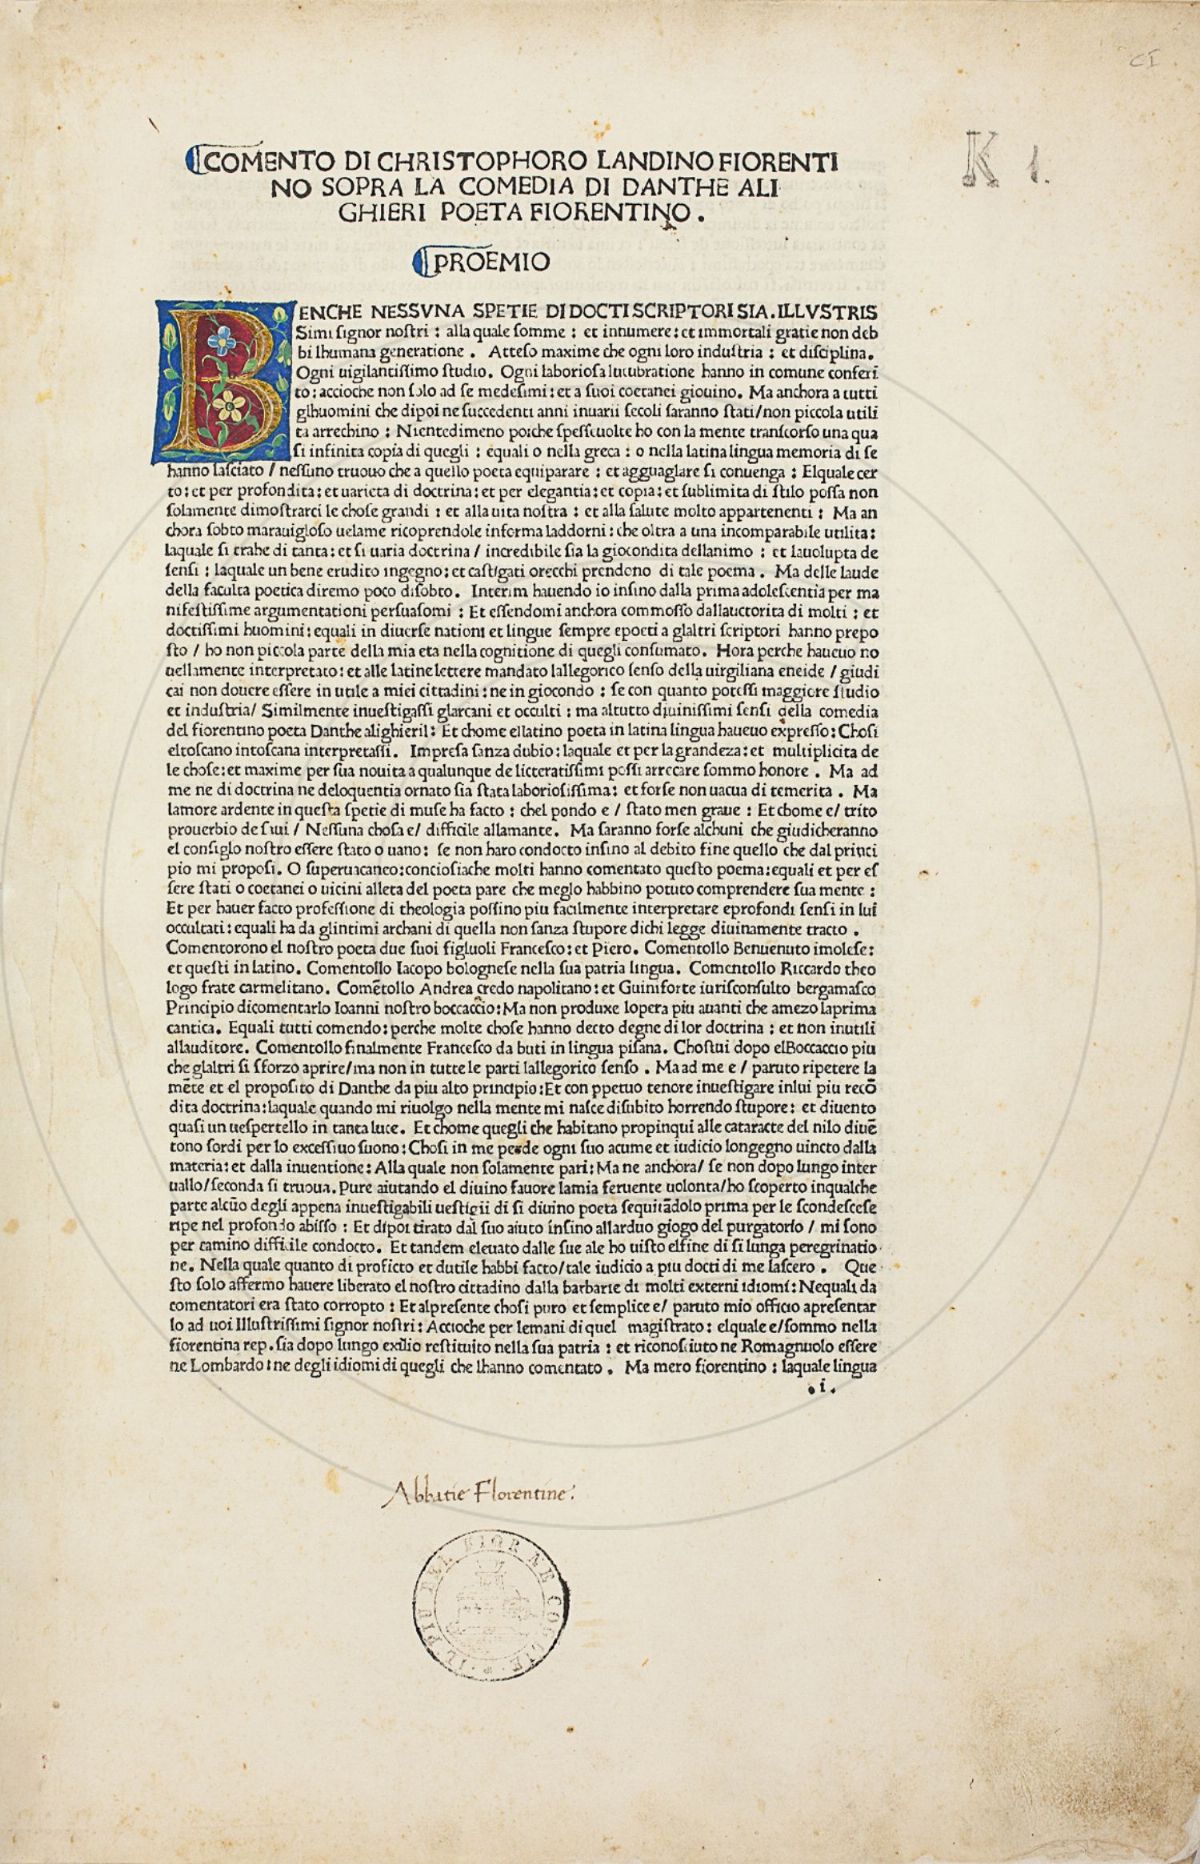 CI
K 1.
COMENTO DI CHRISTOPHORO LANDINO FIORENTI
NO SOPRA LA COMEDIA DI DANTHE ALI
GHIERI POETA FIORENTINO .
PROEMIO
BENCHE NESSVNA SPETIE DI DOCTI SCRIPTORI SIA . ILLVSTRIS
Simi signor nostri : alla quale somme : et innumere : et immortali gratie non deb
bi lhumana generatione . Atteso maxime che ogni loro industria : et disciplina .
Ogni uigilantissimo studio . Ogni laboriosa lucubratione hanno in comune conferi
to : accioche non solo ad se medesimi : et a suoi coetanei giouino . Ma anchora a tutti
glhuomini che dipoi ne succedenti anni inuarii secoli saranno stati / non piccola utili
ta arrechino : Nientedimeno poiche spesseuolte ho con la mente transcorso una qua
si infinita copia di quegli : equali o nella greca : o nella latina lingua memoria di se
hanno lasciato / nessuno truouo che a quello poeta equiparare : et agguaglare si conuenga : Elquale cer
to : et per profondita : et uarieta di doctrina : et per elegantia : et copia : et sublimita di stilo possa non
solamente dimostrarci le chose grandi : et alla uita nostra : et alla salute molto appartenenti : Ma an
chora sobto marauigloso uelame ricoprendole informa laddorni : che oltra a una incomparabile utilita :
laquale si trahe di tanta : et si uaria doctrina / incredibile sia la giocondita dellanimo : et lauolupta de
sensi : laquale un bene erudito ingegno : et castigati orecchi prendono di tale poema . Ma delle laude
della faculta poetica diremo poco disobto . Interim hauendo io insino dalla prima adolescentia per ma
nifestissime argumentationi persuasomi : Et essendomi anchora commosso dallauctorita di molti : et
doctissimi huomini : equali in diuerse nationi et lingue sempre epoeti a glaltri scriptori hanno prepo
sto / ho non piccola parte della mia eta nella cognitione di quegli consumato . Hora perche haueuo no
uellamente interpretato : et alle latine lettere mandato lallegorico senso della uirgiliana eneide / giudi
cai non douere essere in utile a miei cittadini : ne in giocondo : se con quanto potessi maggiore studio
et industria / Similmente inuestigassi glarcani et occulti : ma altutto diuinissimi sensi della comedia
del fiorentino poeta Danthe alighieril : Et chome ellatino poeta in latina lingua haueuo expresso : Chosi
eltoscano intoscana interpretassi . Impresa sanza dubio : laquale et per la grandeza : et multiplicita de
le chose : et maxime per sua nouita a qualunque de litteratissimi possi arrecare sommo honore . Ma ad
me ne di doctrina ne deloquentia ornato sia stata laboriosissima : et forse non uacua di temerita . Ma
lamore ardente in questa spetie di muse ha facto : chel pondo e / stato men graue : Et chome e / trito
prouerbio de suui / Nessuna chosa e / difficile allamante . Ma saranno forse alchuni che giudicheranno
el consiglo nostro essere stato o uano : se non haro condocto insino al debito fine quello che dal princi
pio mi proposi . O superuacaneo : conciosiache molti hanno comentato questo poema : equali et per es
sere stati o coetanei o uicini alleta del poeta pare che meglo habbino potuto comprendere sua mente :
Et per hauer facto professione di theologia possino piu facilmente interpretare eprofondi sensi in lui
occultati : equali ha da glintimi archani di quella non sanza stupore dichi legge diuinamente tracto .
Comentorono el nostro poeta due suoi figluoli Francesco : et Piero . Comentollo Benuenuto imolese :
et questi in latino . Comentollo Iacopo bolognese nella sua patria lingua . Comentollo Riccardo theo
logo frate carmelitano . Comẽtollo Andrea credo napolitano : et Guiniforte iurisconsulto bergamasco
Principio dicomentarlo Ioanni nostro boccaccio : Ma non produxe lopera piu auanti che amezo laprima
cantica . Equali tutti comendo : perche molte chose hanno decto degne di lor doctrina : et non inutili
allauditore . Comentollo finalmente Francesco da buti in lingua pisana . Chostui dopo elBoccaccio piu
che glaltri si sforzo aprire / ma non in tutte le parti lallegorico senso . Ma ad me e / paruto ripetere la
mẽte et el proposito di Danthe da piu alto principio : Et con ppetuo tenore inuestigare inlui piu recõ
dita doctrina : laquale quando mi riuolgo nella mente mi nasce disubito horrendo stupore : et diuento
quasi un uespertello in tanta luce . Et chome quegli che habitano propinqui alle cataracte del nilo diuẽ
tono sordi per lo excessiuo suono : Chosi in me perde ogni suo acume et iudicio longegno uincto dalla
materia : et dalla inuentione : Alla quale non solamente pari : Ma ne anchora / se non dopo lungo inter
uallo / seconda si truoua . Pure aiutando el diuino fauore lamia feruente uolonta / ho scoperto inqualche
parte alcũo degli appena inuestigabili uestigii di si diuino poeta sequitãdolo prima per le scondescese
ripe nel profondo abisso : Et dipoi tirato dal suo aiuto insino allarduo giogo del purgatorio / mi sono
per camino difficile condocto . Et tandem eleuato dalle sue ale ho uisto elfine di si lunga peregrinatio
ne . Nella quale quanto di proficto et dutile habbi facto / tale iudicio a piu docti di me lascero . Que
sto solo affermo hauere liberato el nostro cittadino dalla barbarie di molti externi idiomi : Nequali da
comentatori era stato corropto : Et alpresente chosi puro et semplice e / paruto mio officio apresentar
lo ad uoi Illustrissimi signor nostri : Accioche per lemani di quel magistrato : elquale e / sommo nella
fiorentina rep . sia dopo lungo exilio restituito nella sua patria : et riconosciuto ne Romagnuolo essere
ne Lombardo : ne degli idiomi di quegli che lhanno comentato . Ma mero fiorentino : laquale lingua
. i .
Abbatie Florentine :
IL PIU BEL FIOR NE COGLIE